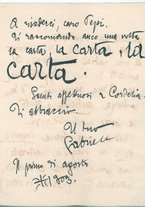 A rivederci, caro Pepi.
Ti raccomando anco una volta
la carta, la carta, la
carta.
Saluti affettuosi a Cordelia.
Ti abbraccio
Il tuo
Gabriele
Il primo di agosto
1903.